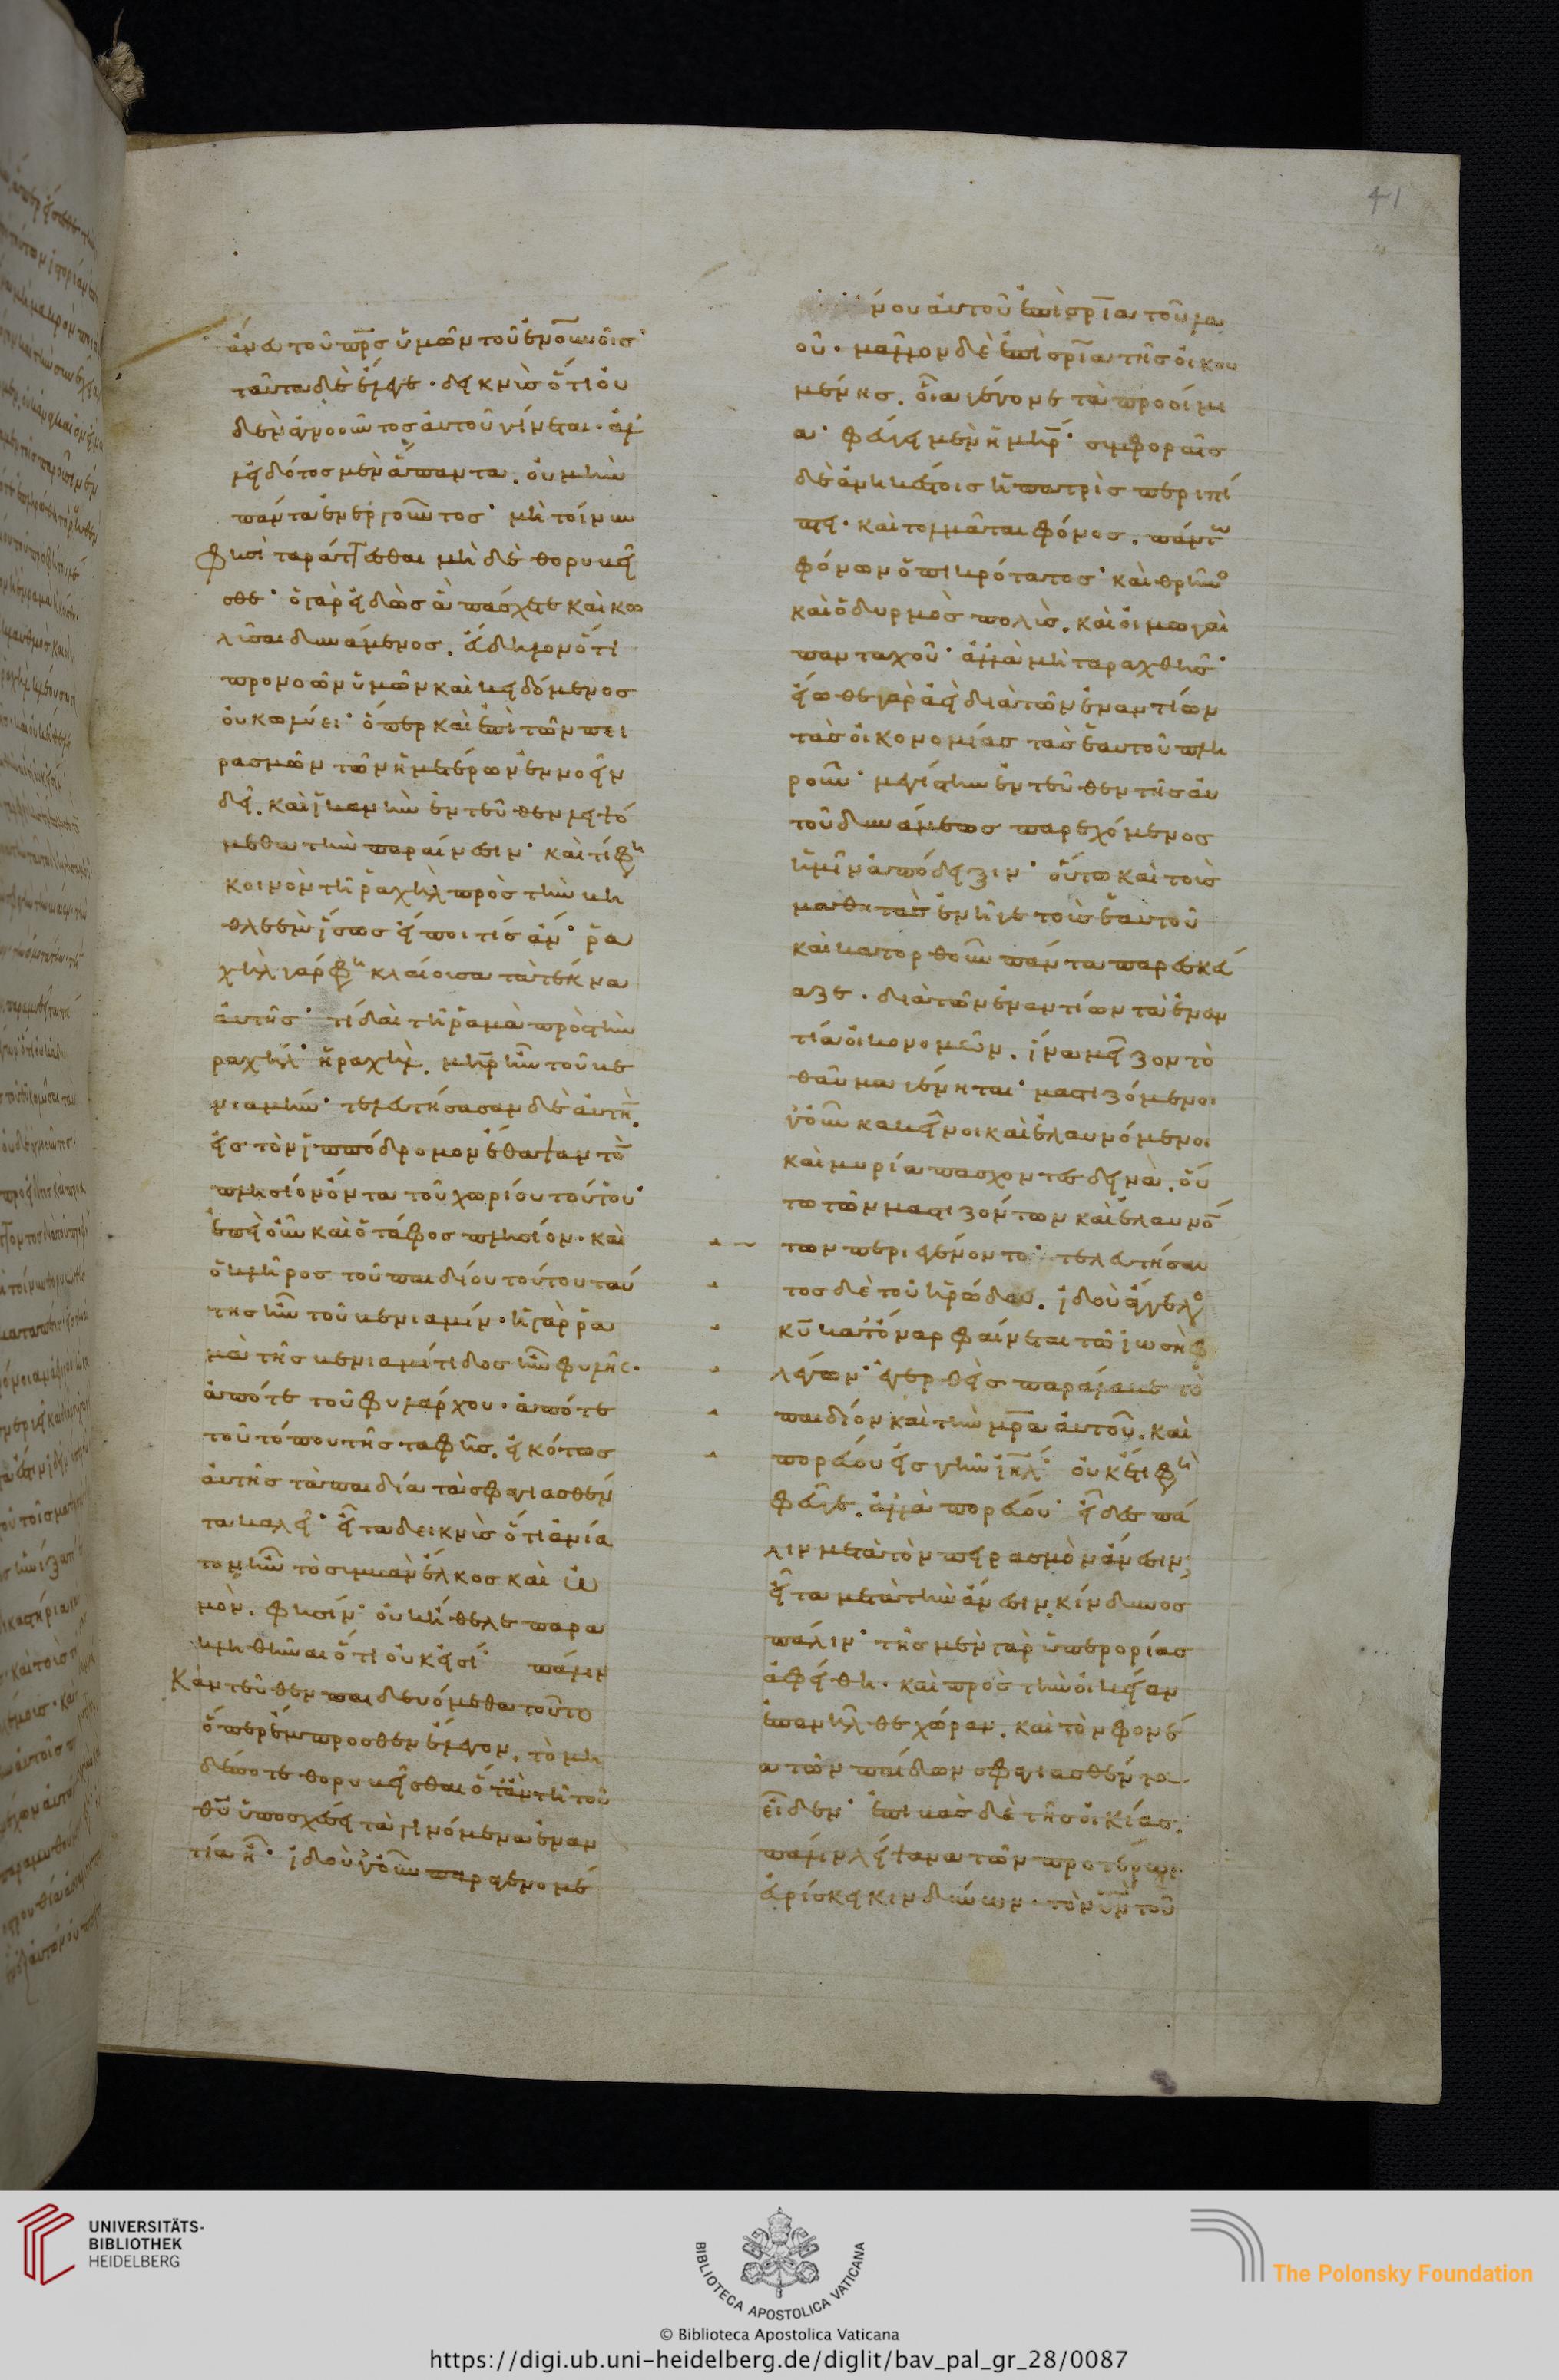 41
ἄνευ τοῦ πρς ὑμῶν τοῦ ἐν οὐνοις·
ταῦτα δὲ ἔλεγε. δεικνὺς ὅτι οὐ
δὲν ἀγνοοῦντος αὐτοῦ γίνεται. ἀλλ
εἰδότος μὲν ἅπαντα. οὐ μὴν
πάντα ἐνεργοῦντος· μὴ τοίνυν
φησὶ ταράττεσθαι μὴ δὲ θορυβεῖ
σθε· ὁ γὰρ εἰδὼς ἃ πάσχετε καὶ κω
λῦσαι δυνάμενος. εὔδηλον ὅτι
προνοῶν ὑμῶν καὶ κηδόμενος
οὐ κωλύει· ὅπερ καὶ ἐπὶ τῶν πει
ρασμῶν τῶν ἡμετέρων ἐννοεῖν
δεῖ. καὶ ἱκανὴν ἐντεῦθεν ληψό
μεθα τὴν παραίνεσιν· καὶ τί φη
κοινὸν τῆ ῥαχὴλ πρὸς τὴν βη
θλεὲμ ἴσως εἴποι τίς ἄν· ῥα
χὴλ γάρ φη κλαίουσα τὰ τέκνα
αὐτῆς· τί δαὶ τῆ ῥαμὰ πρὸς τὴν
ραχήλ· ἡ ραχὴλ μηρ ἦν τοῦ βε
νιαμίν· τελευτήσασαν δὲ αὐτὴν
εἰς τὸν ἱππόδρομον ἔθαψαν τὸν
πλησίον ὄντα τοῦ χωρίου τούτου·
ἐπεὶ οὖν καὶ ὁ τάφος πλησίον. καὶ
ὁ κλῆρος τοῦ παιδίου τούτου ταύ
της ἦν τοῦ βενιαμίν. ἡ γὰρ ῥα
μὰ τῆς βενιαμίτιδος ἦν φυλῆς.
ἀπό τε τοῦ φυλάρχου. ἀπό τε
τοῦ τόπου τῆς ταφῆς. εἰκότως
αὐτῆς τὰ παιδία τὰ σφαγιασθέν
τα καλεῖ· εἶτα δεικνὺς ὅτι ἀνία
τον ἦν τὸ συμβὰν ἕλκος καὶ ὠ
μὸν. φησίν· οὐκ ἤθελε παρα
κληθῆναι ὅτι οὐκ εἰσί· πάλιν
Κἀντεῦθεν παιδευόμεθα τοῦτο
ὅπερ ἔμπροσθεν ἔλεγον. τὸ μη
δέποτε θορυβεῖσθαι ὅταν τῆ τοῦ
θυ ὑποσχέσει τὰ γινόμενα ἐναν
τία ἦ· ἰδοὺ γοῦν παραγενομέ
νου αὐτοῦ ἐπὶ σρία τοῦ λα
οῦ. μᾶλλον δὲ ἐπὶ σρία τῆς οἰκου
μένης. οἷα γέγονε τὰ προοίμι
α· φεύγει μὲν ἡ μηρ· συμφοραῖς
δὲ ἀνηκέστοις ἡ πατρὶς περιπί
πτει. καὶ τολμᾶται φόνος. πάντων
φόνων ὁ πικρότατος· καὶ θρῆνος
καὶ ὀδυρμὸς πολὺς. καὶ οἰμωγαὶ
πανταχοῦ· ἀλλὰ μὴ ταραχθῆς·
εἴωθε γὰρ ἀεὶ διὰ τῶν ἐναντίων
τὰς οἰκονομίας τὰς ἑαυτοῦ πλη
ροῦν· μεγίστην ἐντεῦθεν τῆς αὐ
τοῦ δυνάμεως παρεχόμενος
ἡμῖν ἀπόδειξιν· οὕτω καὶ τοὺς
μαθητὰς ἐνῆγε τοὺς ἑαυτοῦ
καὶ κατορθοῦν πάντα παρεσκεύ
αζε. διὰ τῶν ἐναντίων τὰ ἐναν
τία οἰκονομῶν. ἵνα μεῖζον τὸ
θαῦμα γένηται· μαστιζόμενοι
γοῦν κἀκεῖνοι καὶ ἐλαυνόμενοι
καὶ μυρία πάσχοντες δεινὰ. οὕ
τω τῶν μαστιζόντων καὶ ἐλαυνόν
των περιεγένοντο· τελευτήσαν
τος δὲ τοῦ ἡρώδου. ἰδοὺ ἄγγελος
κυ κατόναρ φαίνεται τῶ ἰωσὴφ
λέγων· ἐγερθεὶς παράλαβε τὸ
παιδίον καὶ τὴν μρα αὐτοῦ. καὶ
πορεύου εἰς γῆν ιηλ· οὐκ ἔτι φη
φεῦγε. ἀλλὰ πορεύου· εἶδες πά
λιν μετὰ τὸν πειρασμὸν ἄνεσιν;
εἶτα μετὰ τὴν ἄνεσιν κίνδυνος
πάλιν· τῆς μὲν γὰρ ὑπερορίας
ἀφείθη. καὶ πρὸς τὴν οἰκείαν
ἐπανῆλθε χώραν. καὶ τὸν φονέ
α τῶν παίδων σφαγιασθέντα
εἶδεν· ἐπιβὰς δὲ τῆς οἰκίας.
πάλιν λείψανα τῶν προτέρων
εὑρίσκει κινδύνων. τὸν υν τοῦ
UNIVERSITÄTS-
BIBLIOTHEK
HEIDELBERG
BIBLIOTECA APOSTOLICA VATICANA
The Polonsky Foundation
© Biblioteca Apostolica Vaticana
https://digi.ub.uni-heidelberg.de/diglit/bav_pal_gr_28/0087